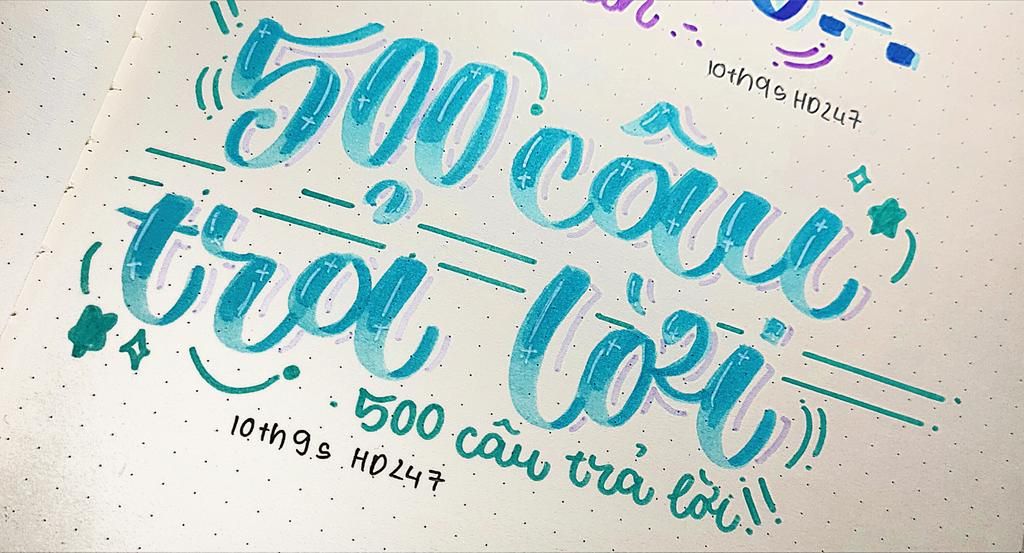 10th9s HD247
500 câu
trả lời
500 câu trả lời!!
10th9s HD247